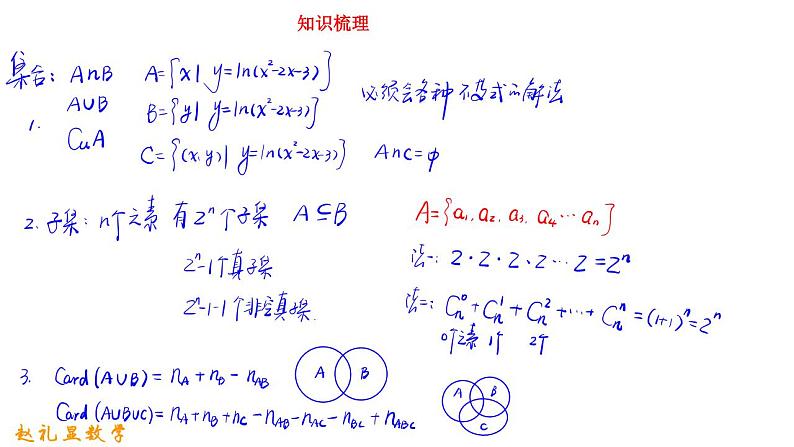 知识梳理
集合: A∩B A={x| y=ln(x²-2x-3)}
必须会各种不等式的解法
1. A∪B B={y| y=ln(x²-2x-3)}
CuA C={(x,y)| y=ln(x²-2x-3)} A∩C=φ
2. 子集: n个元素 有2ⁿ个子集 A⊆B
A={a₁, a₂, a₃, a₄ ⋯ aₙ}
2ⁿ-1个真子集
法一: 2·2·2·2⋯2=2ⁿ
2ⁿ-1-1个非空真子集.
法二: Cₙ⁰+Cₙ¹+Cₙ²+⋯+Cₙⁿ=(1+1)ⁿ=2ⁿ
0个元素 1个 2个
3. Card(A∪B)=n_A+n_B-n_AB
A B
Card(A∪B∪C)=n_A+n_B+n_C-n_AB-n_AC-n_BC+n_ABC
A B
C
赵礼显数学